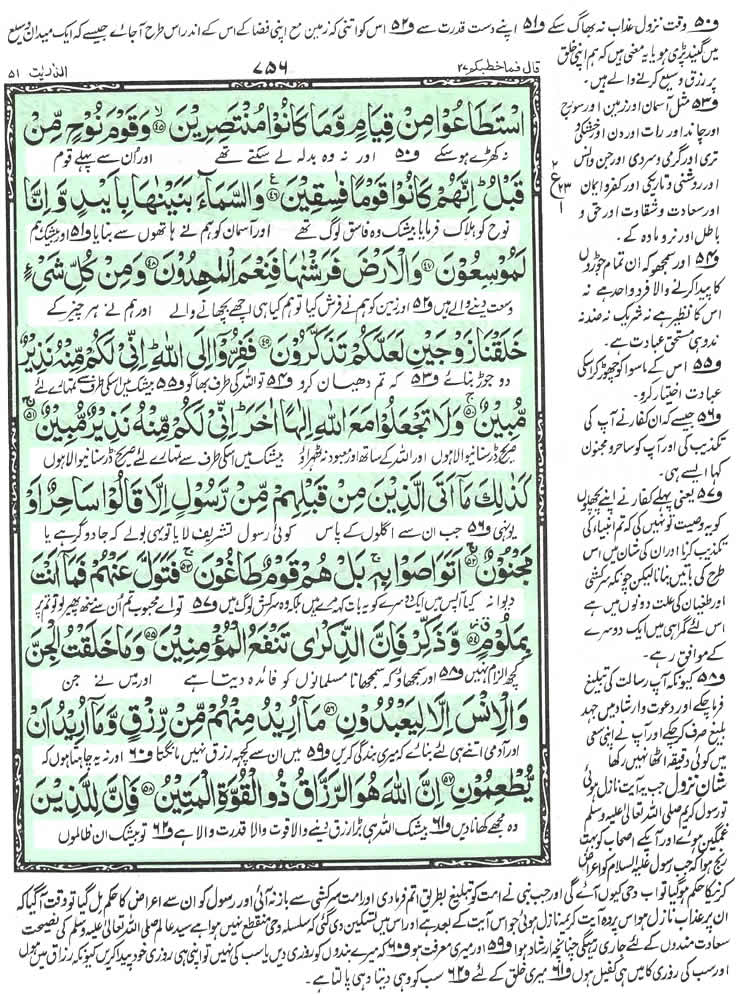 ف۵۰ وقت نزول عذاب نہ بھاگ سکے ف۵۱ اپنے دست قدرت سے ف۵۲ اس کو اتنی کہ زمین مع اپنی فضا کے اس کے اندر اس طرح آجائے جیسے کہ ایک میدان وسیع
میں گیند پڑی ہو یا یہ معنی ہیں کہ ہم اپنی خلق
پر رزق وسیع کرنے والے ہیں۔
ف۵۳ مثل آسمان اور زمین اور سورج
اور چاند اور رات اور دن اور خشکی و
تری اور گرمی و سردی اور جن و انس
اور روشنی و تاریکی اور کفر و ایمان
اور سعادت و شقاوت اور حق و
باطل اور نر و مادہ کے۔
ف۵۴ اور سمجھو کہ ان تمام جوڑوں
کا پیدا کرنے والا فرد واحد ہے نہ
اس کا نظیر ہے نہ شریک نہ ضد نہ
ند وہی مستحق عبادت ہے۔
ف۵۵ اس کے ماسوا کو چھوڑ کر اسکی
عبادت اختیار کرو۔
ف۵۶ جیسے کہ ان کفار نے آپ کی
تکذیب کی اور آپ کو ساحر و مجنون
کہا ایسے ہی۔
ف۵۷ یعنی پہلے کفار نے اپنے پچھلوں
کو یہ وصیت تو نہیں کی کہ تم انبیاء کی
تکذیب کرنا اور ان کی شان میں اس
طرح کی باتیں بنانا لیکن چونکہ سرکشی
اور طغیان کی علت دونوں میں ہے
اس لئے گمراہی میں ایک دوسرے
کے موافق رہے۔
ف۵۸ کیونکہ آپ رسالت کی تبلیغ
فرما چکے اور دعوت و ارشاد میں جہد
بلیغ صرف کر چکے اور آپ نے اپنی سعی
میں کوئی دقیقہ اٹھا نہیں رکھا
شان نزول جب یہ آیت نازل ہوئی
تو رسول کریم صلی اللہ تعالیٰ علیہ وسلم
غمگین ہوئے اور آپکے اصحاب کو بہت
رنج ہوا کہ جب رسول علیہ السلام کو اعراض
قال فما خطبکم ۲۷ ۷۵۶ الذٰریٰت ۵۱
اسْتَطَاعُوْا مِنْ قِیَامٍ وَّمَا كَانُوْا مُنْتَصِرِیْنَ ۴۵ وَقَوْمَ نُوْحٍ مِّنْ
نہ کھڑے ہو سکے ف۵۰ اور نہ وہ بدلہ لے سکتے تھے اور اُن سے پہلے قوم
قَبْلُ اِنَّهُمْ كَانُوْا قَوْمًا فٰسِقِیْنَ ۴۶ وَالسَّمَآءَ بَنَیْنٰهَا بِاَیْىدٍ وَّ اِنَّا
نوح کو ہلاک فرمایا بیشک وہ فاسق لوگ تھے اور آسمان کو ہم نے ہاتھوں سے بنایا ف۵۱ اور بیشک ہم
لَمُوْسِعُوْنَ ۴۷ وَالْاَرْضَ فَرَشْنٰهَا فَنِعْمَ الْمٰهِدُوْنَ ۴۸ وَمِنْ كُلِّ شَیْءٍ
وسعت دینے والے ہیں ف۵۲ اور زمین کو ہم نے فرش کیا تو ہم کیا ہی اچھے بچھانے والے اور ہم نے ہر چیز کے
خَلَقْنَا زَوْجَیْنِ لَعَلَّكُمْ تَذَكَّرُوْنَ ۴۹ فَفِرُّوْۤا اِلَى اللّٰهِ اِنِّیْ لَكُمْ مِّنْهُ نَذِیْرٌ
دو جوڑ بنائے ف۵۳ کہ تم دھیان کرو ف۵۴ تو اللہ کی طرف بھاگو ف۵۵ بیشک میں اسکی طرف سے تمہارے لئے
مُّبِیْنٌ ۵۰ وَلَا تَجْعَلُوْا مَعَ اللّٰهِ اِلٰهًا اٰخَرَ اِنِّیْ لَكُمْ مِّنْهُ نَذِیْرٌ مُّبِیْنٌ ۵۱
صریح ڈر سنانیوالا ہوں اور اللہ کے ساتھ اور معبود نہ ٹھہراؤ بیشک میں اسکی طرف سے تمہارے لئے صریح ڈر سنانیوالا ہوں
كَذٰلِكَ مَاۤ اَتَى الَّذِیْنَ مِنْ قَبْلِهِمْ مِّنْ رَّسُوْلٍ اِلَّا قَالُوْا سَاحِرٌ اَوْ
یونہی ف۵۶ جب ان سے اگلوں کے پاس کوئی رسول تشریف لایا تو یہی بولے کہ جادوگر ہے یا
مَجْنُوْنٌ ۵۲ اَتَوَاصَوْا بِهٖ بَلْ هُمْ قَوْمٌ طَاغُوْنَ ۵۳ فَتَوَلَّ عَنْهُمْ فَمَاۤ اَنْتَ
دیوانہ کیا آپس میں ایک دوسرے کو یہ بات کہہ مرے ہیں بلکہ وہ سرکش لوگ ہیں ف۵۷ تو اے محبوب تم اُن سے منھ پھیر لو تو تم پر
بِمَلُوْمٍ ۵۴ وَّذَكِّرْ فَاِنَّ الذِّكْرٰى تَنْفَعُ الْمُؤْمِنِیْنَ ۵۵ وَمَا خَلَقْتُ الْجِنَّ
کچھ الزام نہیں ف۵۸ اور سمجھاؤ کہ سمجھانا مسلمانوں کو فائدہ دیتا ہے اور میں نے جن
وَالْاِنْسَ اِلَّا لِیَعْبُدُوْنِ ۵۶ مَاۤ اُرِیْدُ مِنْهُمْ مِّنْ رِّزْقٍ وَّمَاۤ اُرِیْدُ اَنْ
اور آدمی اتنے ہی لئے بنائے کہ میری بندگی کریں ف۵۹ میں ان سے کچھ رزق نہیں مانگتا ف۶۰ اور نہ یہ چاہتا ہوں کہ
یُّطْعِمُوْنِ ۵۷ اِنَّ اللّٰهَ هُوَ الرَّزَّاقُ ذُو الْقُوَّةِ الْمَتِیْنُ ۵۸ فَاِنَّ لِلَّذِیْنَ
وہ مجھے کھانا دیں ف۶۱ بیشک اللہ ہی بڑا رزق دینے والا قوت والا قدرت والا ہے ف۶۲ تو بیشک ان ظالموں
۲ ع ۲۳ ۱
کرنیکا حکم ہو گیا تو اب وحی کیوں آئے گی اور جب نبی نے امت کو تبلیغ بطریق اتم فرما دی اور امت سرکشی سے باز نہ آئی اور رسول کو ان سے اعراض کا حکم مل گیا تو وقت آگیا کہ
ان پر عذاب نازل ہو اس پر وہ آیت کریمہ نازل ہوئی جو اس آیت کے بعد ہے اور اس میں تسکین دی گئی کہ سلسلہ وحی منقطع نہیں ہوا ہے سید عالم صلی اللہ تعالیٰ علیہ وسلم کی نصیحت
سعادت مندوں کے لئے جاری رہیگی چنانچہ ارشاد ہوا ف۵۹ اور میری معرفت ہو ف۶۰ کہ میرے بندوں کو روزی دیں یا سب کی نہیں تو اپنی ہی روزی خود پیدا کریں کیونکہ رزاق میں ہوں
اور سب کی روزی کا میں ہی کفیل ہوں ف۶۱ میری خلق کے لئے ف۶۲ سب کو وہی دیتا وہی پالتا ہے۔